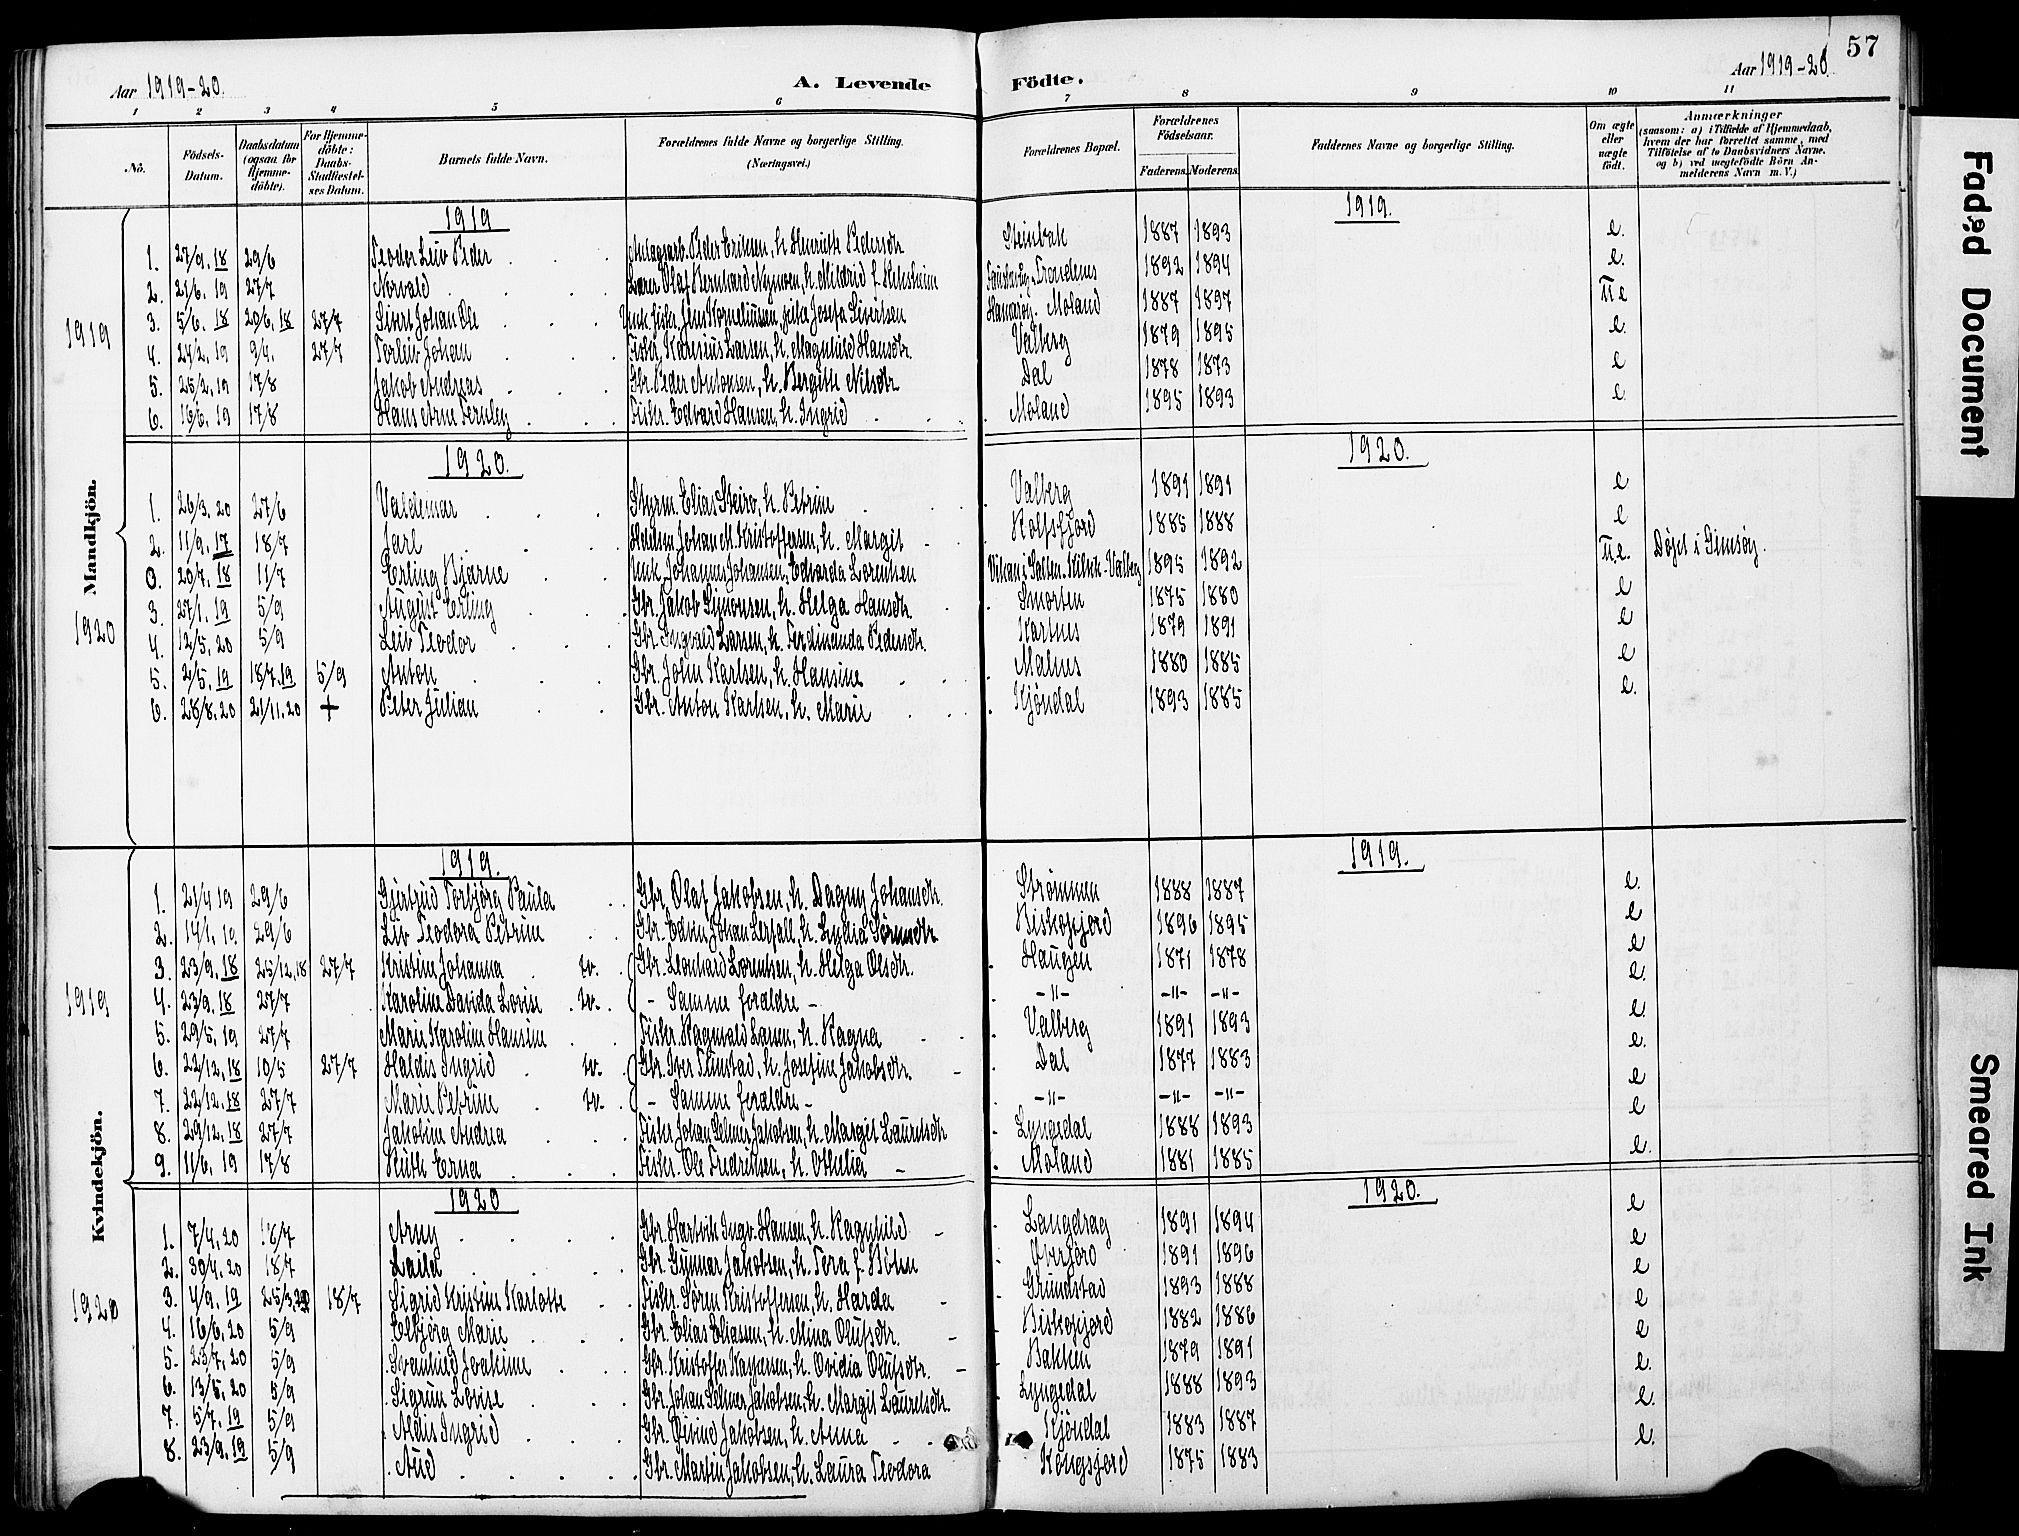 57
Aar 1919-20. A. Levende Födte. Aar 1919-20
1 2 3 4 5 6 7 8 9 10 11
No. Födsels-Datum. Daabsdatum (ogsaa for Hjemme-döbte). For Hjemme-döbte: Daabs-Stadfæstel-ses Datum. Barnets fulde Navn. Forældrenes fulde Navne og borgerlige Stilling. (Næringsvei.) Forældrenes Bopæl. Forældrenes Födselsaar. Faderens. Moderens. Faddernes Navne og borgerlige Stilling. Om ægte eller uægte födt. Anmærkninger (saasom: a) i Tilfælde af Hjemmedaab, hvem der har forrettet samme, med Tilföielse af to Daabsvidners Navne, og b) ved uægtefödte Börn An-melderens Navn m. V.)
Mandkjön.
1919 1919.
1. 27/9. 18 29/6 Teodor Leiv Peder Peder Eriksen, h. Henriette Pedersdtr Steinbak 1887 1893 e.
2. 21/6. 19 27/7 Norvald Lærer Olaf Bernhard Nymoen, h. Mildrid f. Trondenes 1892 1894 e.
1919
3. 5/6. 18 20/6. 18 27/7 Sivert Johan Ole Unk. fisker Jens Korneliussen, pike Josefa Sivertsen Hamarøy. Moland 1887 1897 U e
4. 24/2. 19 9/4. 27/7 Torleiv Johan Fisker Karesius Larsen, h. Magnhild Hansdtr. Valberg 1879 1895 e.
5. 25/2. 19 17/8 Jakob Andreas Gbr. Peder Antonsen, h. Bergitte Nilsdtr Dal 1878 1873 e
6. 16/6. 19 17/8 Hans Arne Fernley Fisker. Edvard Hansen, h. Ingrid Moland 1895 1893 e.
1920. 1920.
1. 26/3. 20 27/6 Valdemar Styrm. Elias Steiro, h. Petrine Valberg 1891 1891 e
2. 11/9. 17 18/7 Jarl Johan M. Kristoffersen, h. Margit Rolfsfjord 1885 1888 e
0. 20/7. 18 11/7 Erling Bjarne Unk. Johannes Johansen, Edvarda Lorentsen Valberg 1895 1892 U.e. Døpt i Gimsøy.
3. 27/1. 19 5/9 August Erling Gbr. Jakob Simonsen, h. Helga Hansdtr Smorten 1875 1880 e
1920
4. 12/5. 20 5/9 Leiv Teodor Gbr. Ingvald Larsen, h. Ferdinanda Pedersdtr. Kartnes 1879 1891 e
5. 2/5. 19 18/7. 19 5/9 Anton Gbr. John Karlsen, h. Hansine Malnes 1880 1885 e
6. 28/8. 20 21/11. 20 + Peter Julian Gbr. Anton Karlsen, h. Marie Kjøndal 1893 1885 e.
Kvindekjön.
1919. 1919.
1. 21/4 19 29/6 Gjertrud Torbjørg Paula Gbr. Olaf Jakobsen, h. Dagny Johansdtr. Strømmen 1888 1887 e.
2. 14/1. 19. 29/6 Liv Teodora Petrine Gbr. Edvin Johan Lerfall, h. Lydia Sørensdtr Biskopjord 1896 1895 e
3. 23/9. 18 25/12. 18 27/7 Kristine Johanna tv. Gbr. Leonhard Lorentsen, h. Helga Olsdtr. Haugen 1871 1878 e
1919
4. 23/9. 18 27/7 Karoline Davida Lovise tv. - Samme foreldre - -"- -"- -"- e.
5. 29/5. 19 27/7 Marie Karoline Hansine Fisker Ragnvald Larsen, h. Ragna Valberg 1891 1893 e
6. 22/12. 18 10/5 27/7 Haldis Ingrid tv. Gbr. Iver Finstad, h. Josefine Jakobsdtr. Dal 1877 1883 e.
7. 22/12. 18 27/7 Marie Petrine tv. - Samme foreldre - -"- -"- -"- e
8. 29/12. 18 27/7 Jakobine Andrea Fisker Johan Selmer Jakobsen, h. Margit Lauritsdtr Lyngedal 1888 1893 e
9. 11/6. 19 17/8 Ruth Erna Fisker. Ole Fredriksen, h. Othilia Moland 1881 1885 e.
1920 1920.
1. 7/4. 20 18/7 Arny Gbr. Hartvik Ingv. Hansen, h. Ragnhild Langdrag 1891 1894 e
2. 30/4. 20 18/7 Laila Gbr. Gunnar Jakobsen, h. Tora f. Bøhn 1891 1896 e
3. 4/9. 19 25/3. 20 18/7 Sigrid Kristine Karlotte Fisker. Søren Kristoffersen, h. Harda Grundstad 1893 1888 e
1920
4. 16/6. 20 5/9 Elbjørg Marie Gbr. Elias Eliassen, h. Mina Olufsdtr. Biskopjord 1882 1886 e
5. 23/7. 20 5/9 Svanhild Joakime Gbr. Kristoffer Kaspersen, h. Ovidia Olufsdtr. Bakken 1879 1891 e
6. 13/5. 20 5/9 Sigrun Lovise Gbr. Johan Selmer Jakobsen, h. Margit Lauritsdtr. Lyngedal 1888 1893 e.
7. 5/7. 19 5/9 Aldis Ingrid Gbr. Øivind Jakobsen, h. Anna Kjøndal 1883 1887 e.
8. 23/9. 19 5/9 Aud Gbr. Martin Jakobsen, h. Laura Teodora Kongsjord 1875 1883 e.
Faded Document
Smeared Ink